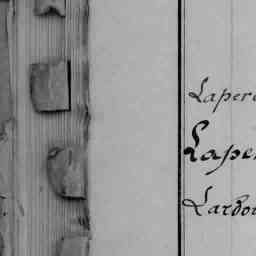 Lapere
Lape
Lardo